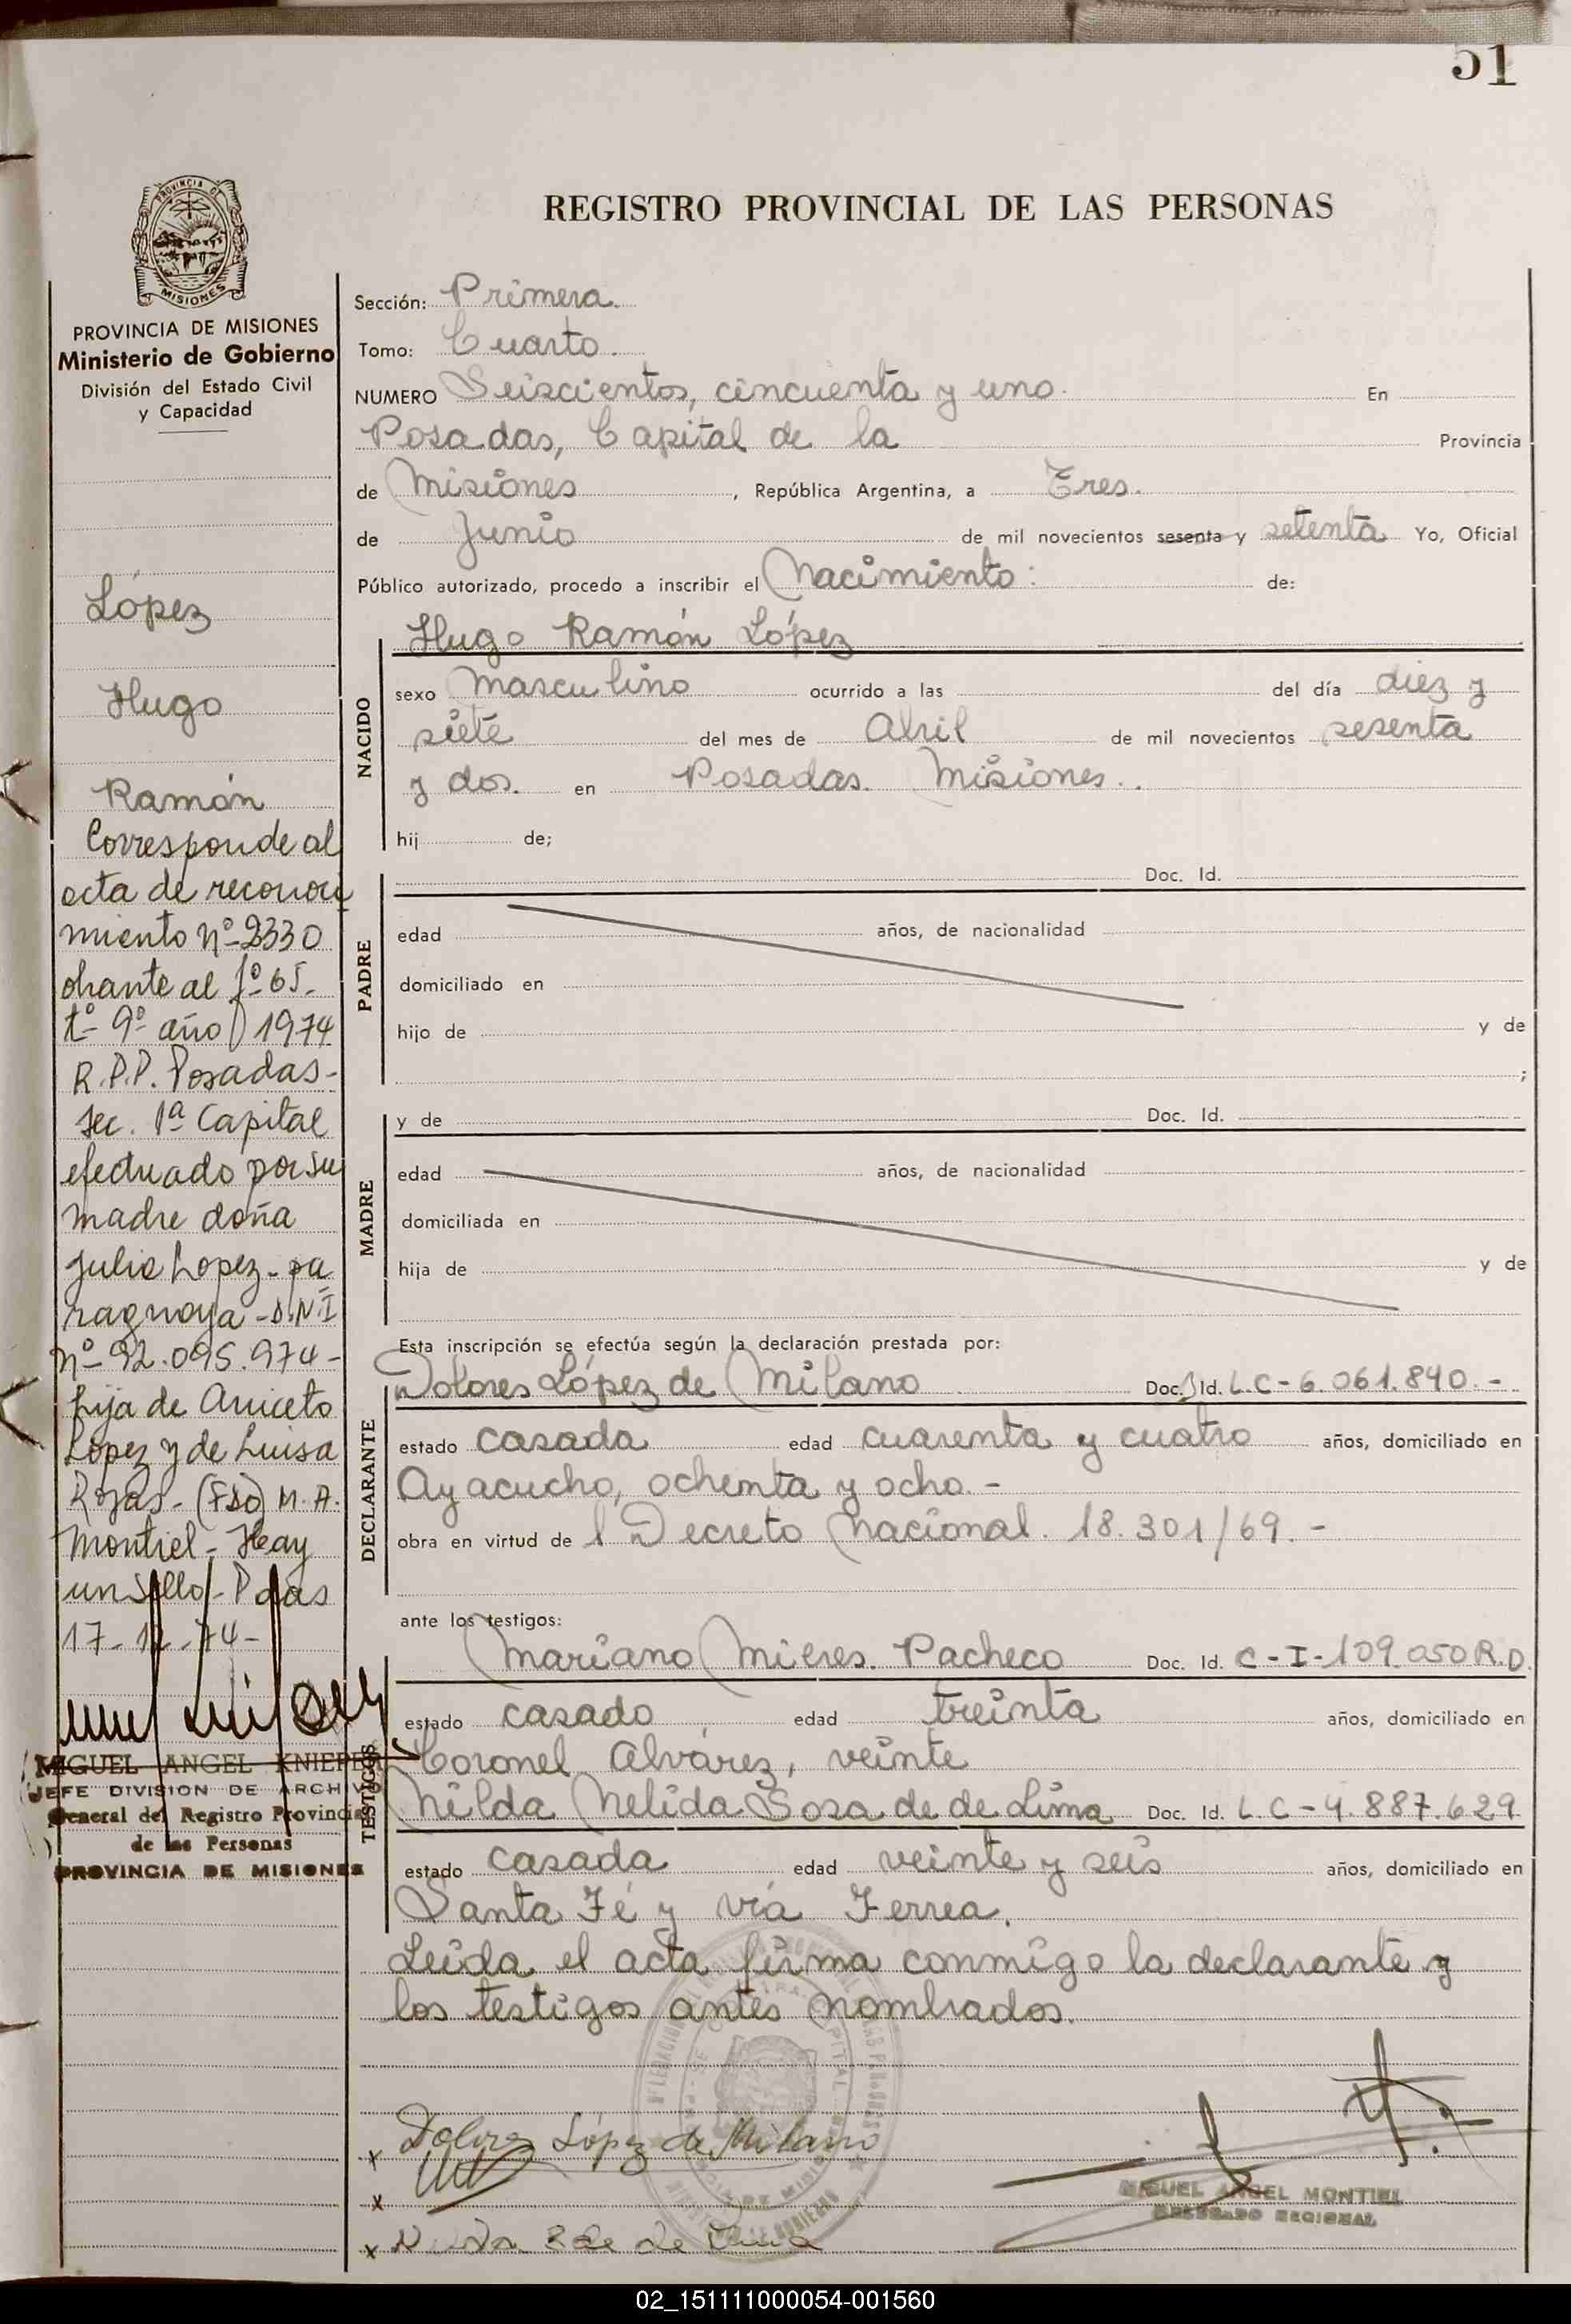 51
PROVINCIA DE
MISIONES
PROVINCIA DE MISIONES
Ministerio de Gobierno
División del Estado Civil
y Capacidad
REGISTRO PROVINCIAL DE LAS PERSONAS
Sección: Primera.
Tomo: Cuarto.
NUMERO Seiscientos, cincuenta y uno. En
Posadas, Capital de la Provincia
de Misiones , República Argentina, a Tres.
de Junio de mil novecientos sesenta y setenta Yo, Oficial
Público autorizado, procedo a inscribir el Nacimiento: de:
Hugo Ramón López
NACIDO
sexo Masculino ocurrido a las del día diez y
siete del mes de Abril de mil novecientos sesenta
y dos. en Posadas. Misiones.
hij de;
PADRE
Doc. Id.
edad años, de nacionalidad
domiciliado en
hijo de y de
;
MADRE
y de Doc. Id.
edad años, de nacionalidad
domiciliada en
hija de y de
Esta inscripción se efectúa según la declaración prestada por:
DECLARANTE
Dolores López de Milano Doc. Id. L.C-6.061.840.-
estado casada edad cuarenta y cuatro años, domiciliado en
Ayacucho, ochenta y ocho.-
obra en virtud de l Decreto Nacional. 18.301/69.-
ante los testigos:
TESTIGOS
Mariano Mieres. Pacheco Doc. Id. C-I-109.050 R.D.
estado casado edad treinta años, domiciliado en
Coronel Alvárez, veinte
Nilda Nelida Sosa de de Lima Doc. Id. L.C-4.887.629
estado casada edad veinte y seis años, domiciliado en
Santa Fé y vía Ferrea.
Leída el acta firma conmigo la declarante y
los testigos antes nombrados.
x Dolores López de Milano
x
x
MIGUEL ANGEL MONTIEL
DELEGADO REGIONAL
López
Hugo
Ramón
Corresponde al
acta de reconoci
miento Nº-2330
obrante al fº-65-
tº- 9º año 1974
R.P.P. Posadas-
Sec. 1ª Capital
efectuado por su
madre doña
Julia Lopez-pa
raguaya-D.N.I
Nº-92.095.974-
hija de Aniceto
Lopez y de Luisa
Rojas-(Fdo) M.A.
Montiel-Heay
un sello-Pdas
17-12-74-
MIGUEL ANGEL KNIEPER
JEFE DIVISION DE ARCHIVO
General del Registro Provincial
de las Personas
PROVINCIA DE MISIONES
02_151111000054-001560